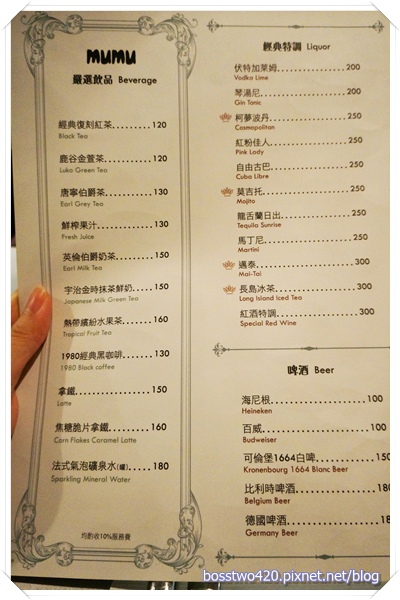 mumu
嚴選飲品 Beverage
經典復刻紅茶.........120
Black Tea
鹿谷金萱茶.........120
Luku Green Tea
唐寧伯爵茶.........130
Earl Grey Tea
鮮榨果汁............130
Fresh Juice
英倫伯爵奶茶.......150
Earl Milk Tea
宇治金時抹茶鮮奶.....150
Japanese Milk Green Tea
熱帶繽紛水果茶.......160
Tropical Fruit Tea
1980經典黑咖啡.......130
1980 Black coffee
拿鐵...............150
Latte
焦糖脆片拿鐵.........160
Corn Flakes Caramel Latte
法式氣泡礦泉水(罐).....180
Sparkling Mineral Water
均酌收10%服務費
經典特調 Liquor
伏特加萊姆..............200
Vodka Lime
琴湯尼..................200
Gin Tonic
柯夢波丹................250
Cosmopolitan
紅粉佳人................250
Pink Lady
自由古巴................250
Cuba Libre
莫吉托..................250
Mojito
龍舌蘭日出..............250
Tequila Sunrise
馬丁尼..................250
Martini
邁泰....................300
Mai-Tai
長島冰茶................300
Long Island Iced Tea
紅酒特調................300
Special Red Wine
啤酒 Beer
海尼根..................100
Heineken
百威....................100
Budweiser
可倫堡1664白啤.........150
Kronenbourg 1664 Blanc Beer
比利時啤酒..............180
Belgium Beer
德國啤酒................18
Germany Beer
bosstwo420.pixnet.net/blog